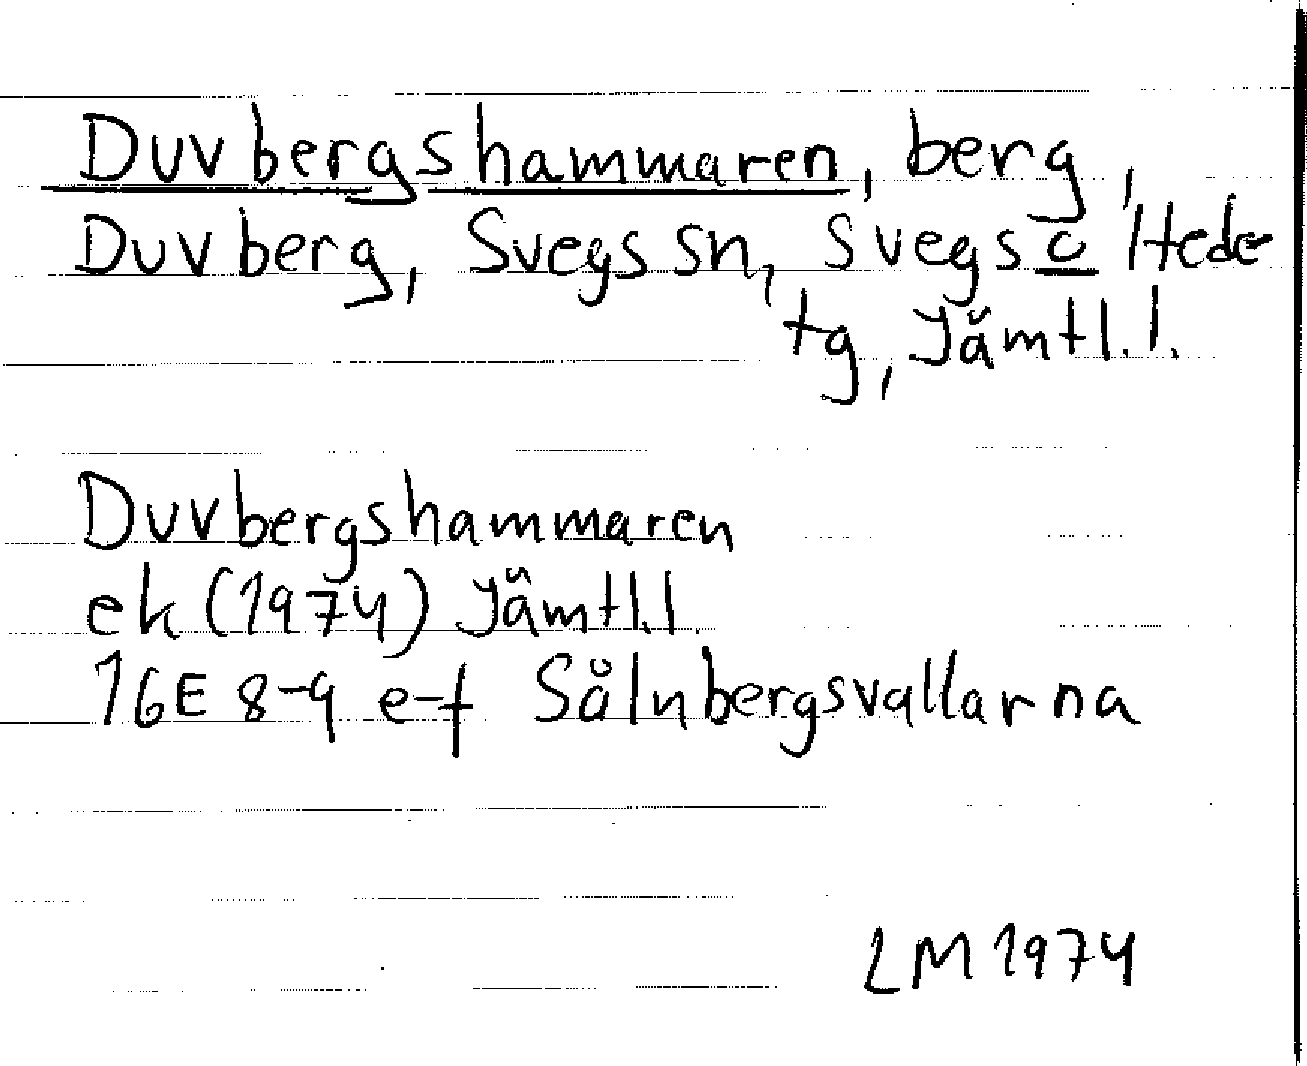 Duvbergshammaren, berg,
Duvberg, Svegs sn, Svegs o Hede
tg, Jämtl. l.
Duvbergshammaren
ek (1974) Jämtl. l.
16E 8-9 e-f Sålnbergsvallarna
LM 1974